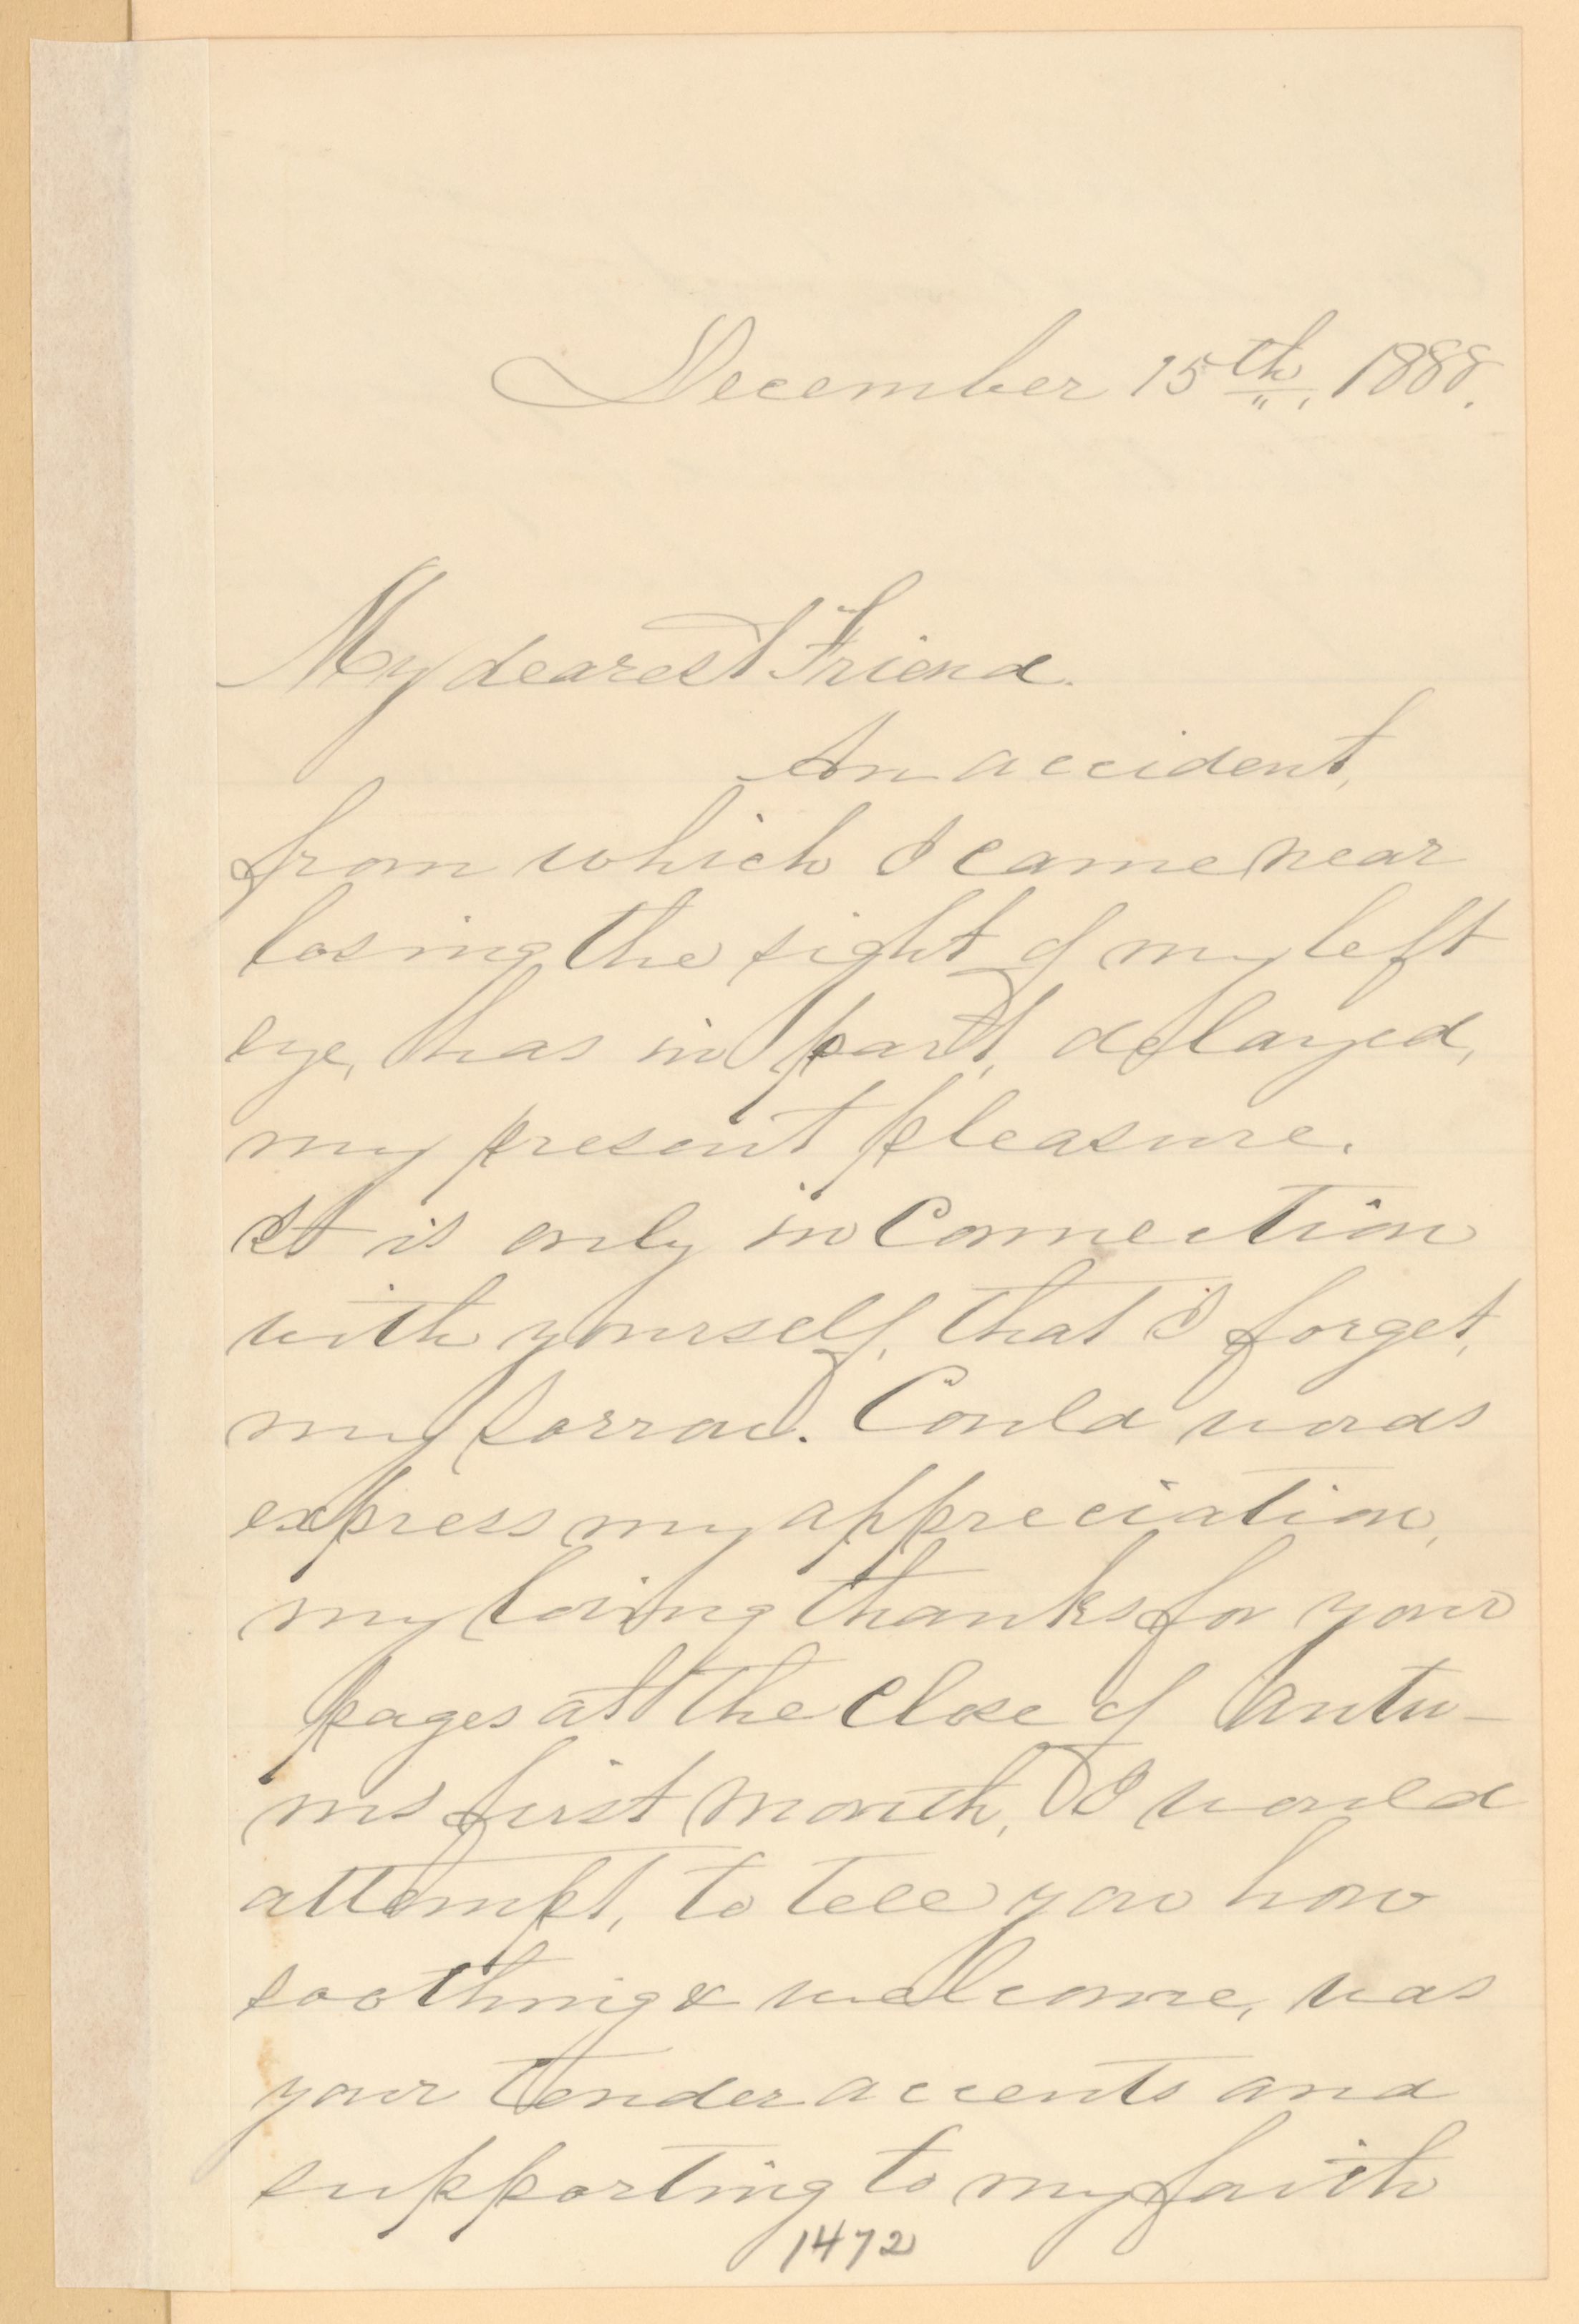 December 15th, 1888.
My dearest Friend.
An accident,
from which I came near
losing the sight of my left
eye, has in part, delayed,
my present pleasure.
It is only in Connection
with yourself, that I forget,
my sorrow. Could words
express my appreciation,
my loving thanks for your
pages at the Close of Autu-
mns first month, I would
attempt, to tell you how
soothing & welcome, was
your tender accents and
supporting to my faith
1472